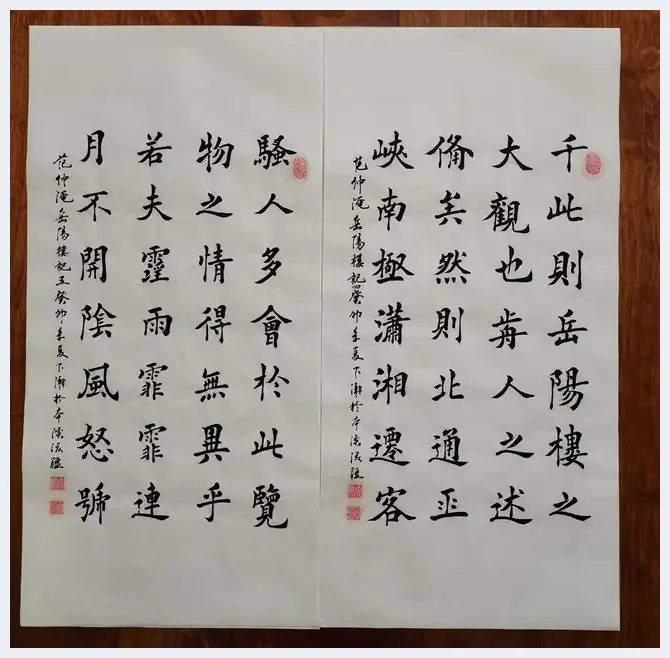 千此則岳陽樓之
大觀也歬人之述
備矣然則北通巫
峽南極瀟湘遷客
范仲淹岳陽樓記四癸卯年夏下澣於本溪
騷人多會於此覽
物之情得無異乎
若夫霪雨霏霏連
月不開陰風怒號
范仲淹岳陽樓記五癸卯年夏下澣於本溪